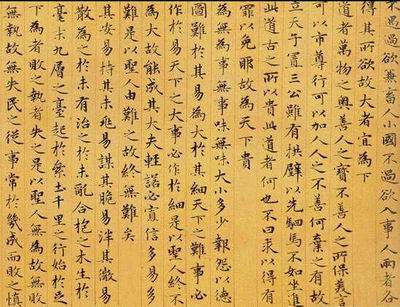 不過欲兼畜人小國不過欲入事人兩者各
得其所欲故大者宜為下
道者萬物之奧善人之寶不善人之所保美
可以市尊行可以加人人之不善何棄之有故
立天子置三公雖有拱璧以先駟馬不如坐進
此道古之所以貴此道者何也不曰求以得有
罪以免耶故為天下貴
為無為事無事味無味大小多少報怨以德
圖難於其易為大於其細天下難事必
作於易天下之大事必作於細是以聖人終不
為大故能成其大夫輕諾必寡信多易多
難是以聖人由難之故終無難矣
其安易持其未兆易謀其脆易泮其微易
散為之於未有治之於未亂合抱之木生於
毫末九層之臺起於累土千里之行始於足
下為者敗之執者失之是以聖人無為故無敗
無執故無失民之從事常於幾成而敗之慎